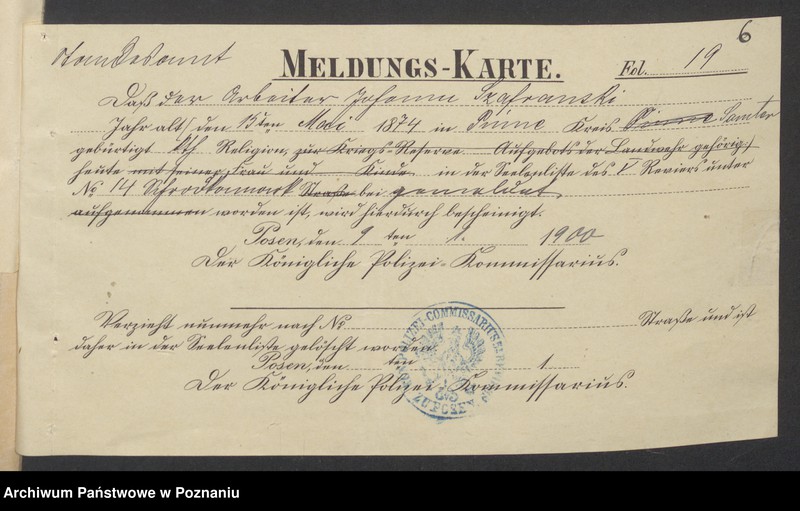 6
Standesamt
MELDUNGS-KARTE.
Fol. 19
Daß der Arbeiter Johann Szafranski
Jahr alt, den 15ten Mai 1874 in Pinne Kreis Samter
gebürtigt kth Religion, zur Kriegs-Reserve Aufgebots der Landwehr gehörig,
heute mit seiner Frau und Kinde in der Seelenliste des V Reviers unter
No 14 Schrodkamark Straße bei gemeldet
aufgenommen worden ist, wird hierdurch bescheinigt.
Posen, den 9 ten 1. 1900
Der Königliche Polizei-Kommissarius.
Verzieht nunmehr nach No. Straße und ist
daher in der Seelenliste gelöscht worden.
Posen, den ten 1
Der Königliche Polizei-Kommissarius.
POLIZEI-COMMISSARIUS
ZU POSEN
Archiwum Państwowe w Poznaniu